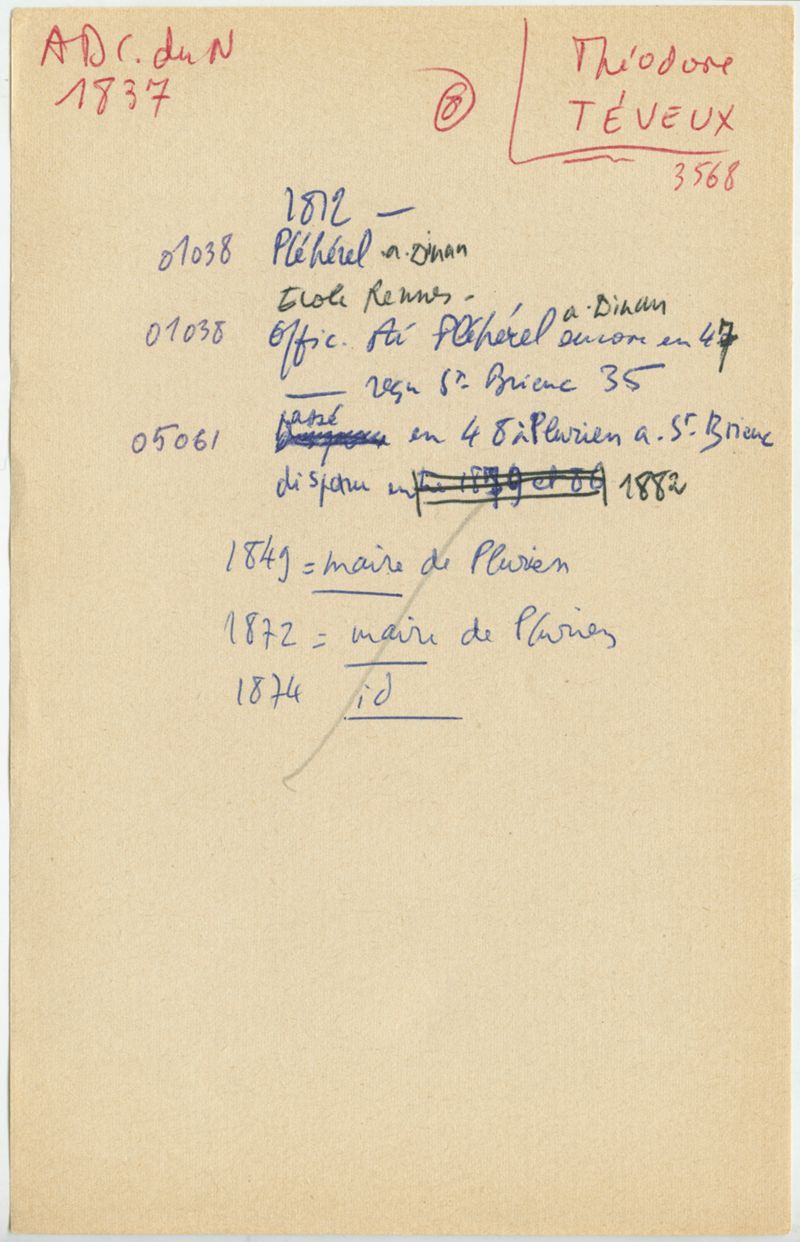 AD C. du N
1837
8
Théodore
TÉVEUX
3568
1812 —
01038 Pléhérel a. Dinan
Ecole Rennes -
a. Dinan
01038 Offic. Pléhérel encore en 47
— reçu St Brieuc 35
passé
05061 en 48 à Plurien a. St Brieuc
disparu en 1882
1849 = maire de Plurien
1872 = maire de Plurien
1874 id